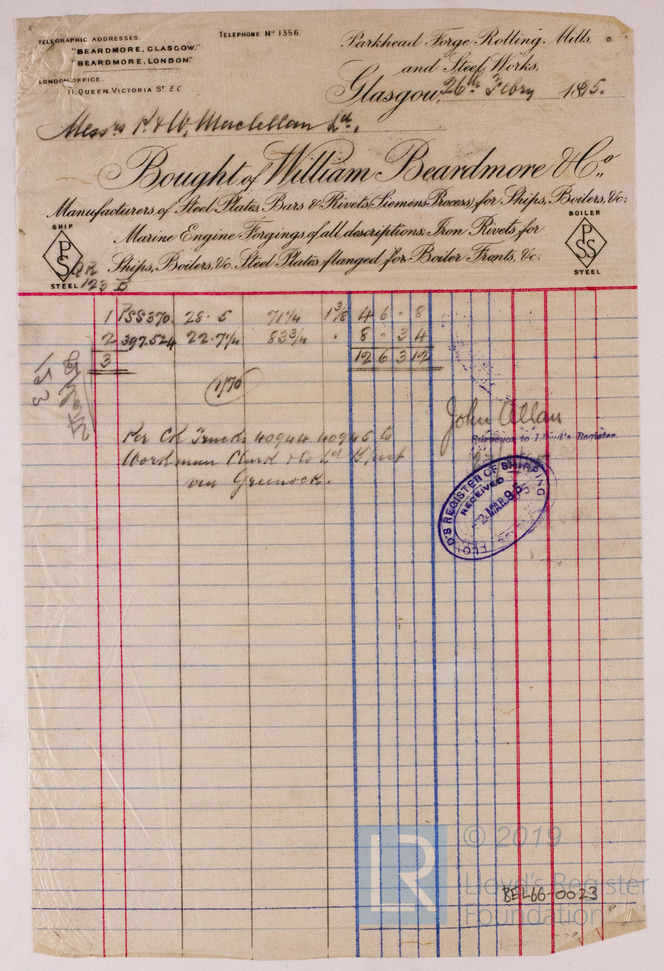 TELEGRAPHIC ADDRESSES.
"BEARDMORE, GLASGOW."
"BEARDMORE, LONDON".
LONDON OFFICE,
11, QUEEN VICTORIA ST. E.C.
TELEPHONE No 1356
Parkhead Forge Rolling Mills,
and Steel Works,
Glasgow, 26th Febry 1895.
Messrs P. & W. Maclellan Ld.
Bought of William Beardmore & Co.,
Manufacturers of Steel Plates, Bars & Rivets (Siemens Process), for Ships, Boilers, &c:
Marine Engine Forgings of all descriptions Iron Rivets, for
Ships, Boilers, &c. Steel Plates flanged for Boiler Fronts, &c.
SHIP
PSS
STEEL
BOILER
PSS
STEEL
123 B
1 PSS 370. 28 · 5 71 1/4 1 3/8 4 6 - 8
2 397.524 22 · 7 1/4 83 3/4 " 8 - 3 4
3 12 6 3 12
1/70
153
Per CK Trucks 40944 40945 to
Workman Clark & Co Ld Belfast
via Greenock.
John Allan
Surveyor to Lloyd's Register.
LLOYD'S REGISTER OF SHIPPING
RECEIVED
2 MAR 95
© 2019
LR
Lloyd's Register
Foundation
BEL66-0023